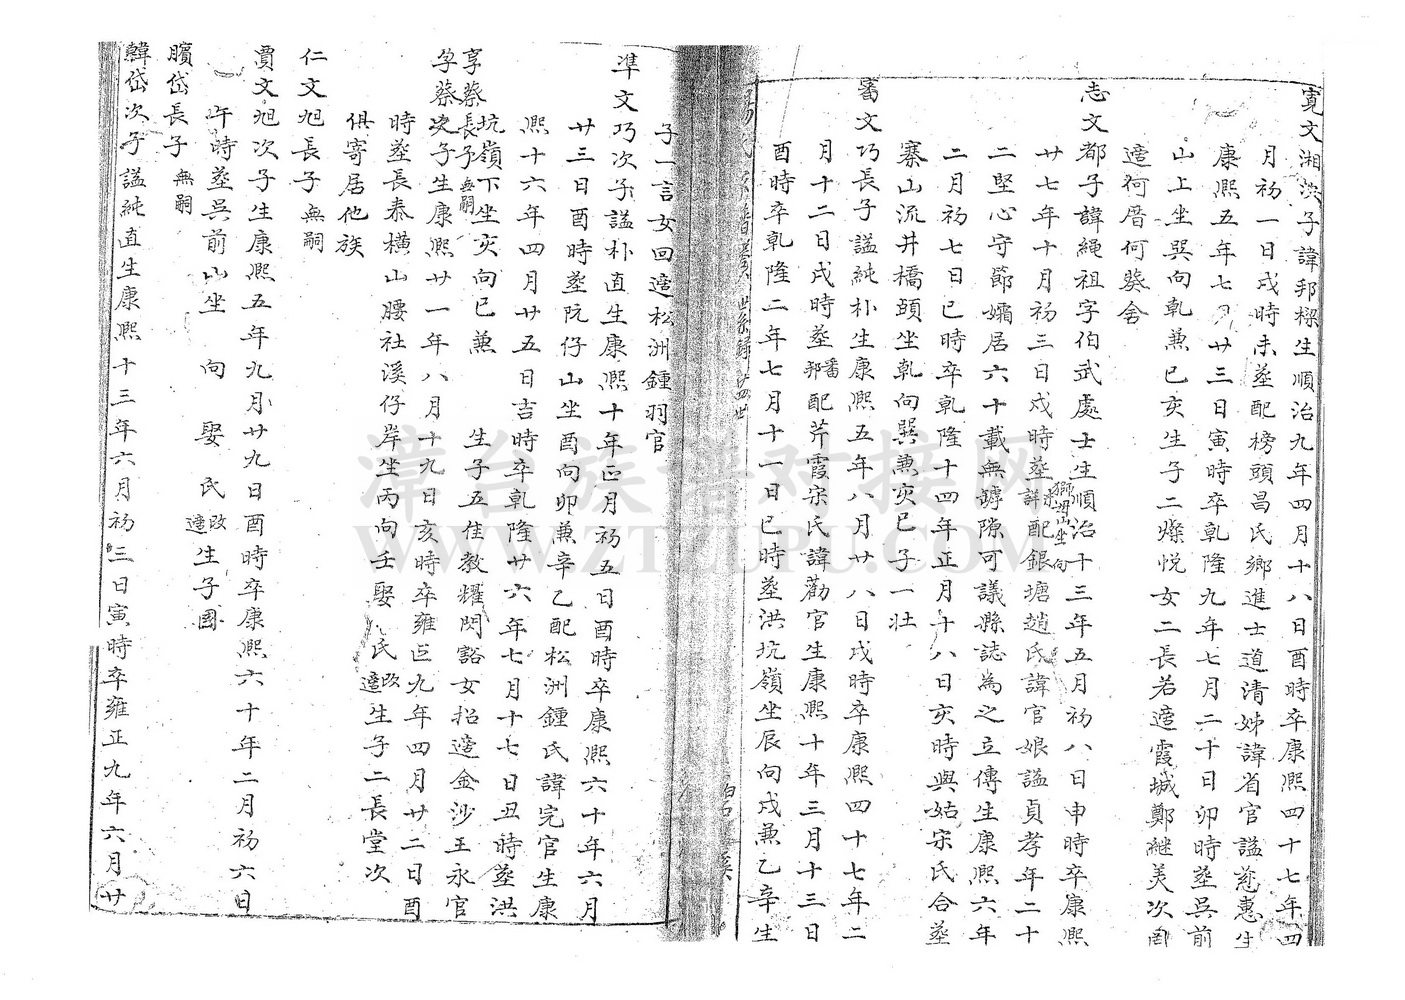 寬文湘洪子諱邦樑生順治九年四月十八日酉時卒康熙四十七年四
月初一日戌時未塟配榜頭昌氏鄉進士道清姊諱省官謚慈惠生
康熙五年七月廿三日寅時卒乾隆九年七月二十日卯時塟吳前
山上坐巽向乾兼巳亥生子二燦悅女二長若適霞城鄭継美次罔
適何厝何葵舍
志文都子諱繩祖字伯武處士生順治十三年五月初八日申時卒康熙
廿七年十月初三日戌時塟獅山坐向未詳配銀塘趙氏諱官娘謚貞孝年二十
二堅心守節孀居六十載無罅隙可議縣誌為之立傳生康熙六年
二月初七日巳時卒乾隆十四年正月十八日亥時與姑宋氏合塟
寨山流井橋頭坐乾向巽兼亥巳子一壯
蓄文巧長子謚純朴生康熙五年八月廿八日戌時卒康熙四十七年二
月十二日戌時塟配芹霞宋氏諱勸官生康熙十年三月十三日
酉時卒乾隆二年七月十一日巳時塟洪坑嶺坐辰向戌兼乙辛生
子一言女回適松洲鍾羽官
準文巧次子謚朴直生康熙十年正月初五日酉時卒康熙六十年六月
廿三日酉時塟阮仔山坐酉向卯兼辛乙配松洲鍾氏諱完官生康
熙十六年四月廿五日吉時卒乾隆廿六年七月十七日丑時塟洪
坑嶺下坐亥向巳兼 生子五佳教耀閃豁女招適金沙王永官
享蔡長子無嗣
孕蔡次子生康熙廿一年八月十九日亥時卒雍正九年四月廿二日酉
時塟長泰橫山腰社溪仔岸坐丙向壬娶 氏改適生子二長堂次
俱寄居他族
仁文旭長子無嗣
賈文旭次子生康熙五年九月廿九日酉時卒康熙六十年二月初六日
午時塟吳前山坐 向 娶 氏改適生子國
臏岱長子無嗣
韓岱次子謚純直生康熙十三年六月初三日寅時卒雍正九年六月廿
漳台族譜对接网
WWW.ZTZUPU.COM